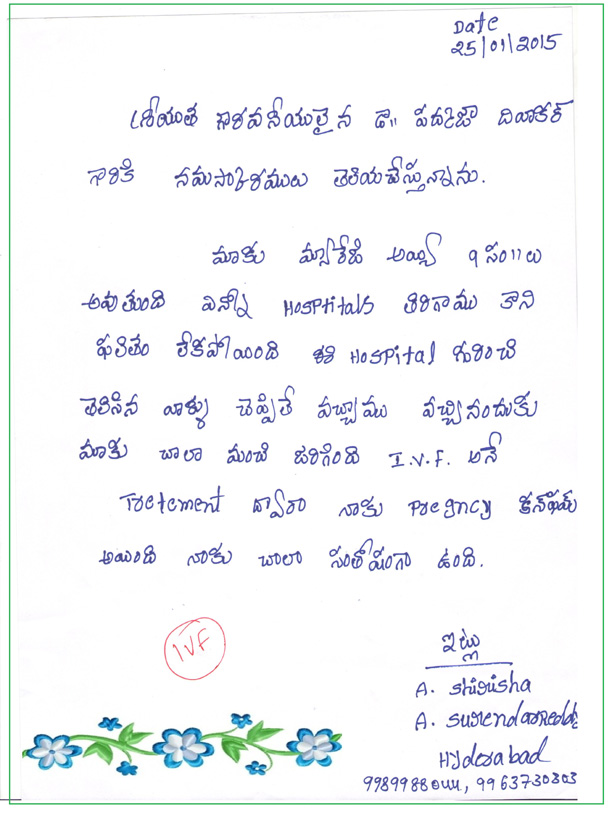 Date
25/01/2015
శ్రీయుత గౌరవనీయులైన డా॥ పద్మజా దివాకర్
గారికి నమస్కారములు తెలియచేస్తున్నాను.
మాకు మ్యారేజి అయ్యి 9 సం॥లు
అవుతుంది ఎన్నో Hospitals తిరిగాము కాని
ఫలితం లేకపోయింది ఈ Hospital గురించి
తెలిసిన వాళ్ళు చెప్పితే వచ్చాము వచ్చినందుకు
మాకు చాలా మంచి జరిగింది I.V.F. అనే
Tretement ద్వారా నాకు Pregncy కన్ఫమ్
అయింది నాకు చాలా సంతోషంగా ఉంది.
IVF
ఇట్లు
A. Shirisha
A. SurendarReddy
Hyderabad
9989988044, 9963730303